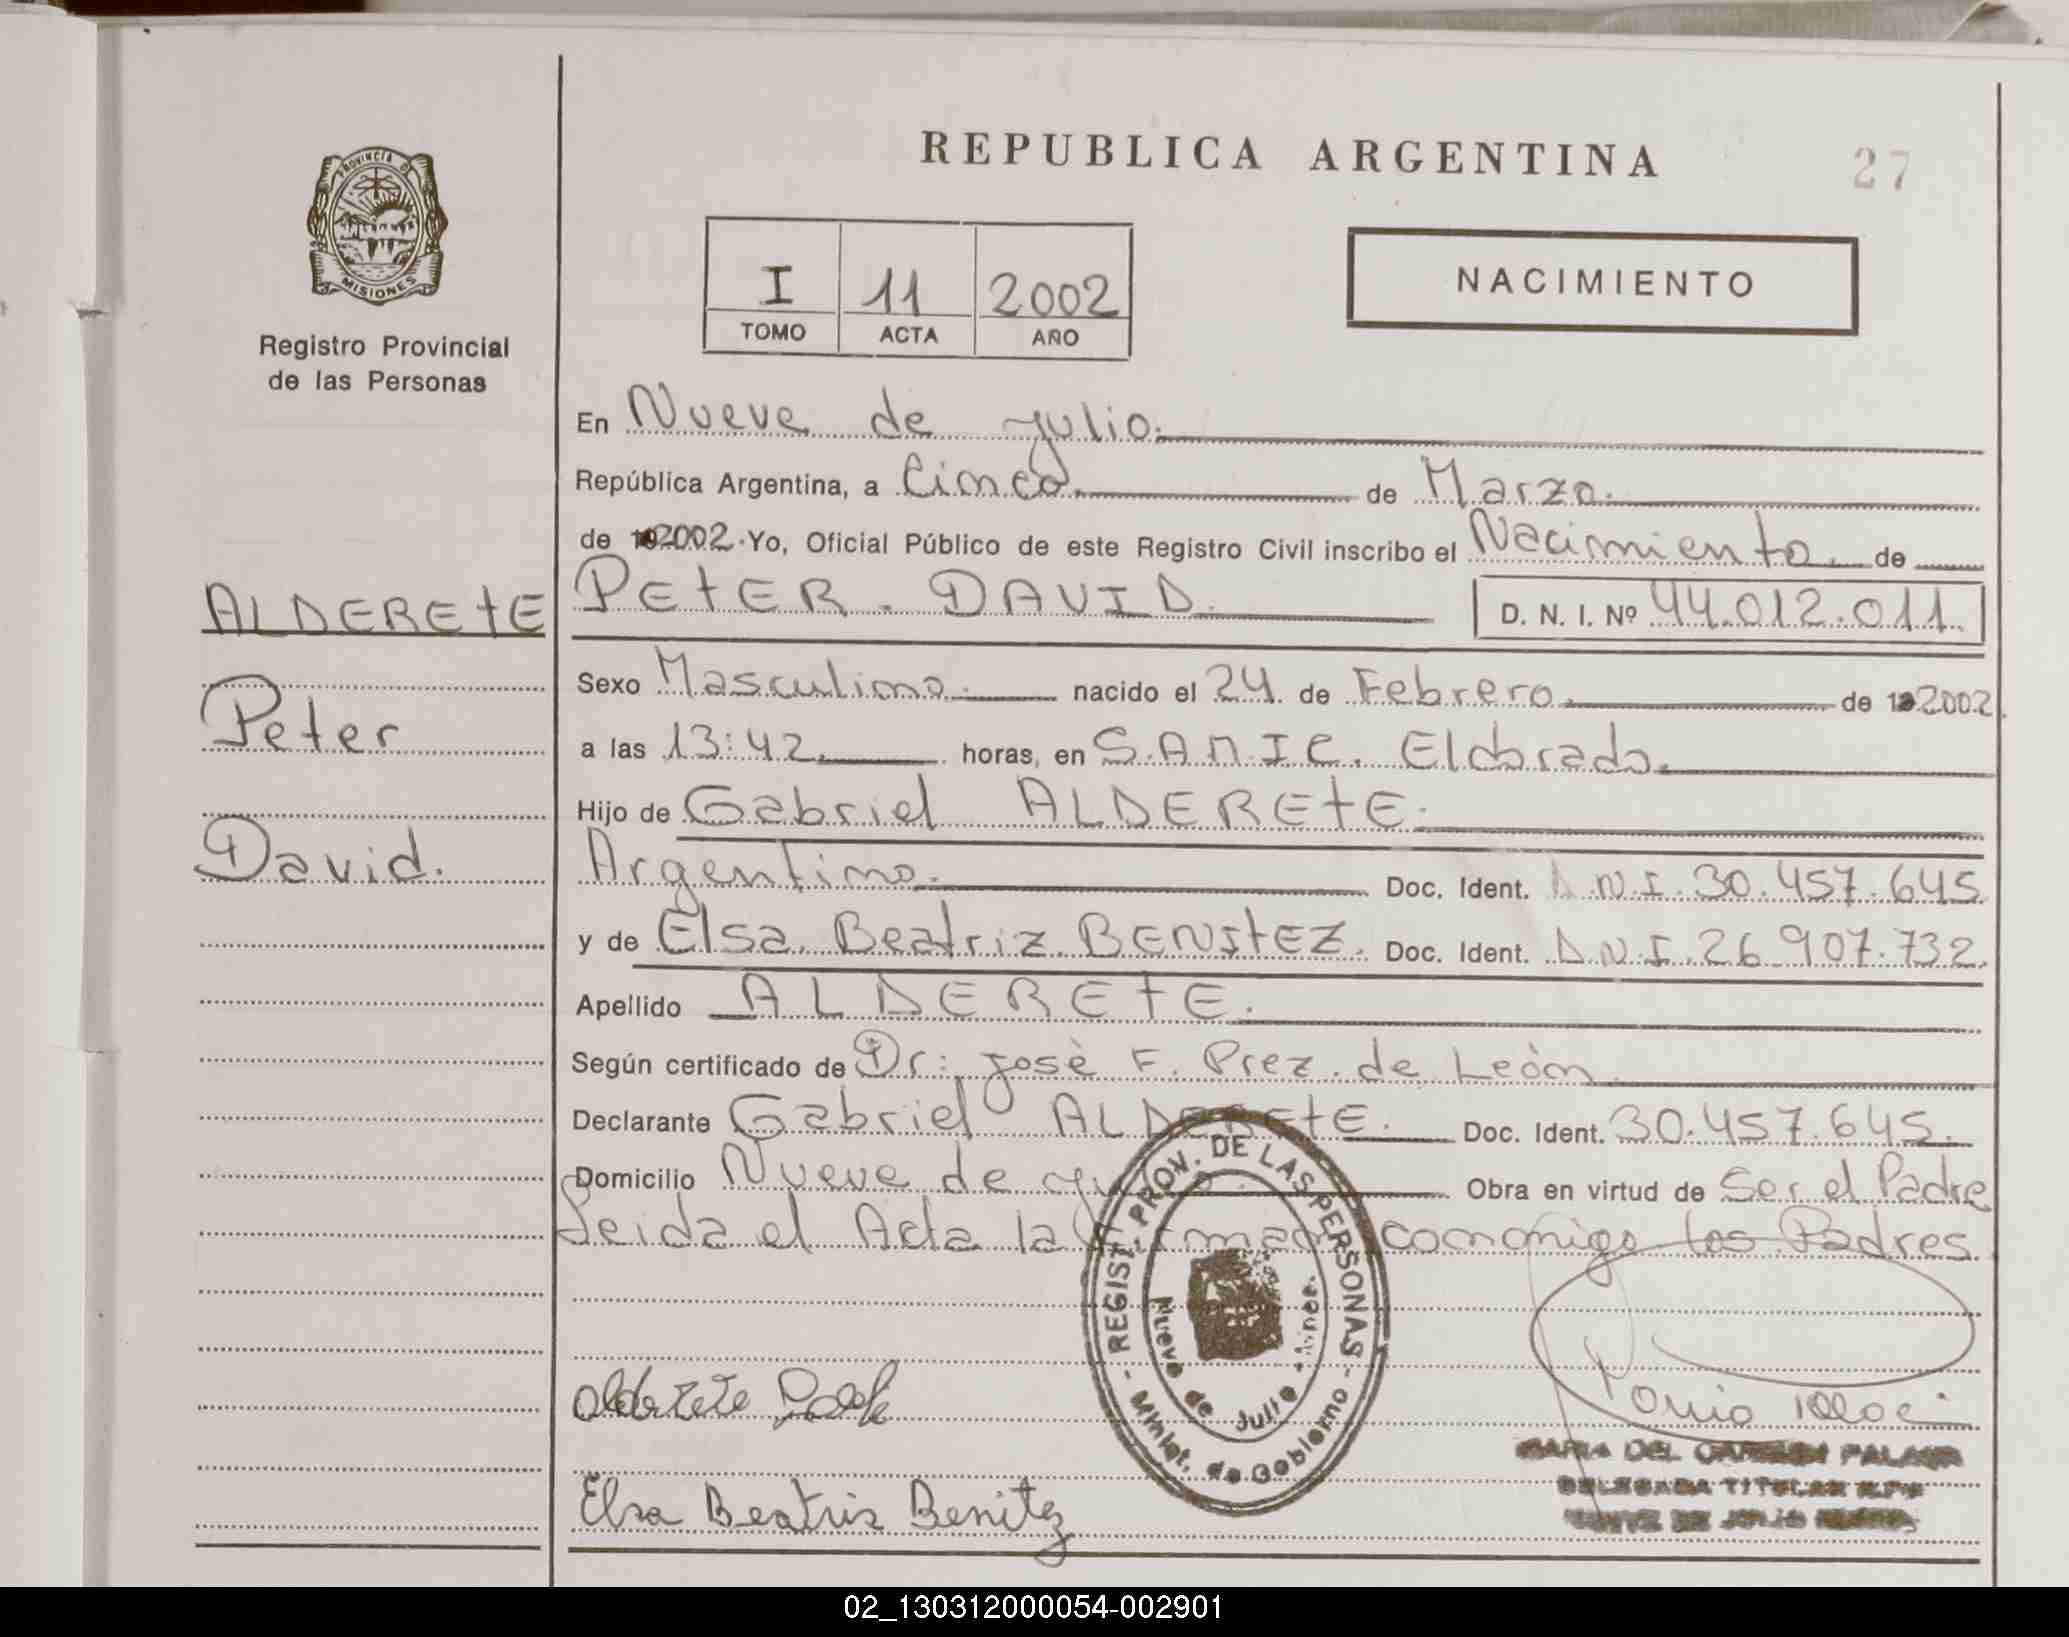 REPUBLICA ARGENTINA
27
PROVINCIA DE
MISIONES
Registro Provincial
de las Personas
I 11 2002
TOMO ACTA AÑO
NACIMIENTO
En Nueve de Julio.
República Argentina, a Cinco. de Marzo.
de 2002. Yo, Oficial Público de este Registro Civil inscribo el Nacimiento. de
ALDERETE PETER. DAVID. D. N. I. Nº 44.012.011.
Sexo Masculino. nacido el 24. de Febrero. de 2002.
Peter
a las 13:42. horas, en S.A.M.I.C. Eldorado.
Hijo de Gabriel ALDERETE.
David.
Argentino. Doc. Ident. D.N.I. 30.457.645.
y de Elsa Beatriz BENITEZ. Doc. Ident. D.N.I. 26.907.732.
Apellido ALDERETE.
Según certificado de Dr: José F. Prez. de León.
Declarante Gabriel ALDERETE. Doc. Ident. 30.457.645.
Domicilio Nueve de Julio. Obra en virtud de Ser el Padre
Leida el Acta la Firman conmigo los Padres.
REGIST. PROV. DE LAS PERSONAS
Nueve de Julio - Mnes.
- Minist. de Gobierno -
Alderete
Elsa Beatriz Benitez
MARIA DEL CARMEN
DELEGADA TITULAR
NUEVE DE JULIO
02_130312000054-002901